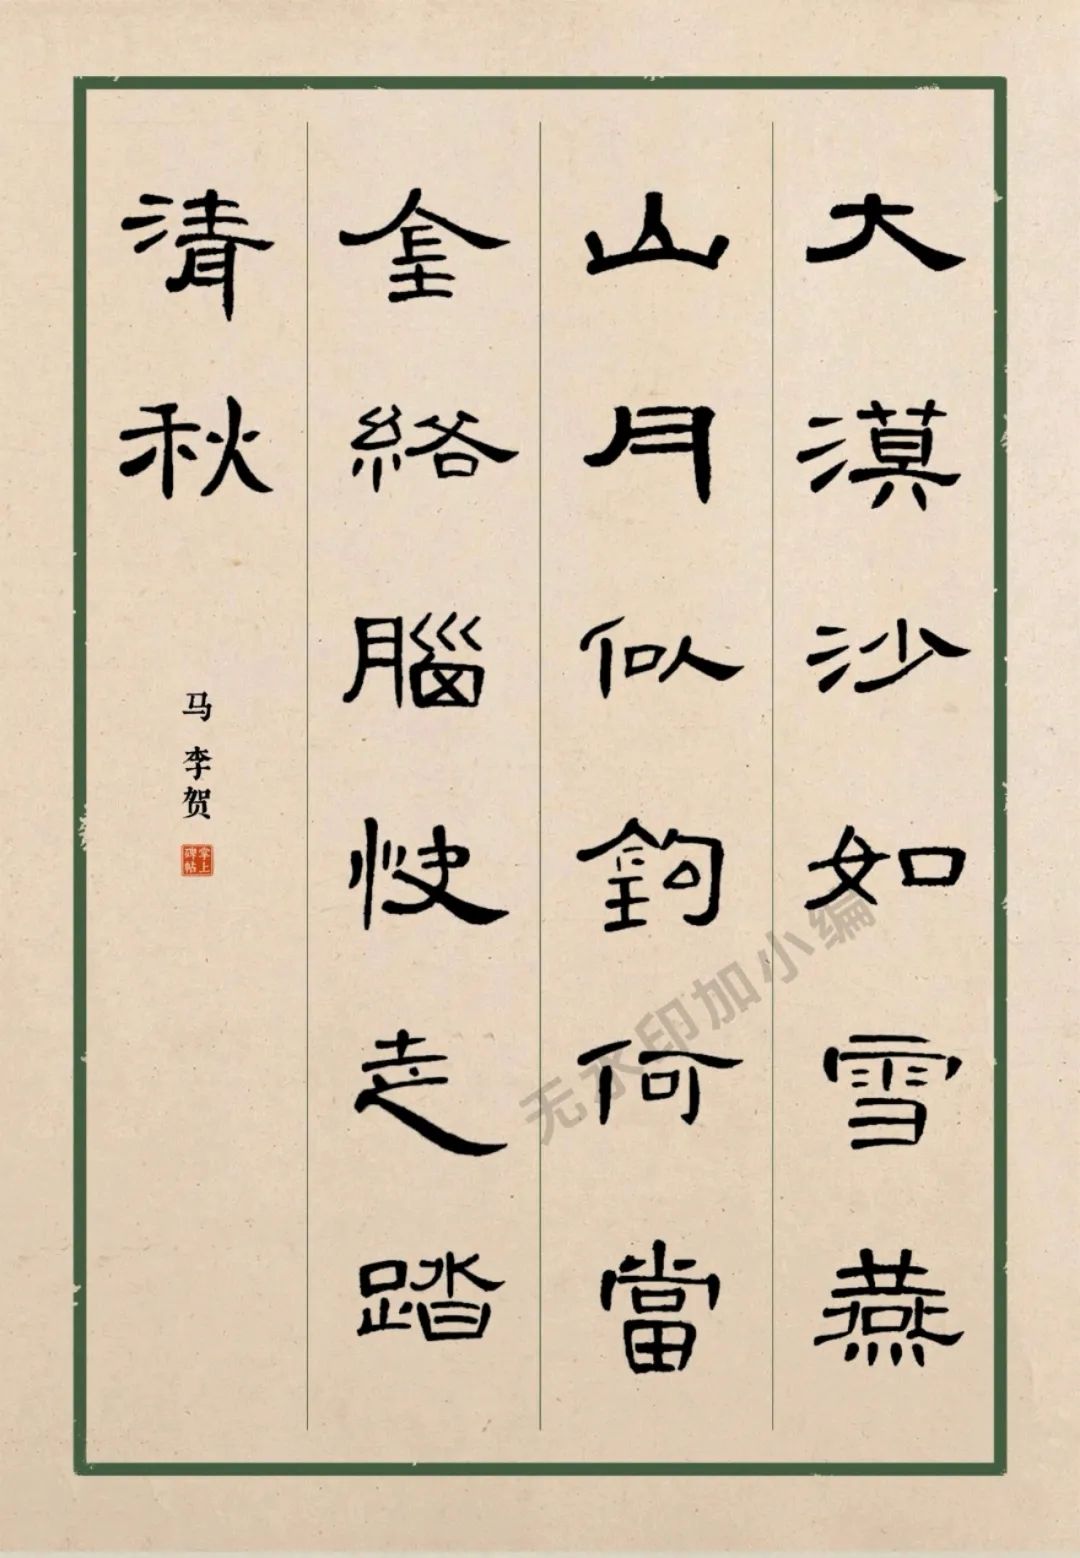 大漠沙如雪燕
山月似鉤何當
金絡腦快走踏
清秋
马 李贺
掌上
碑帖
无水印加小编